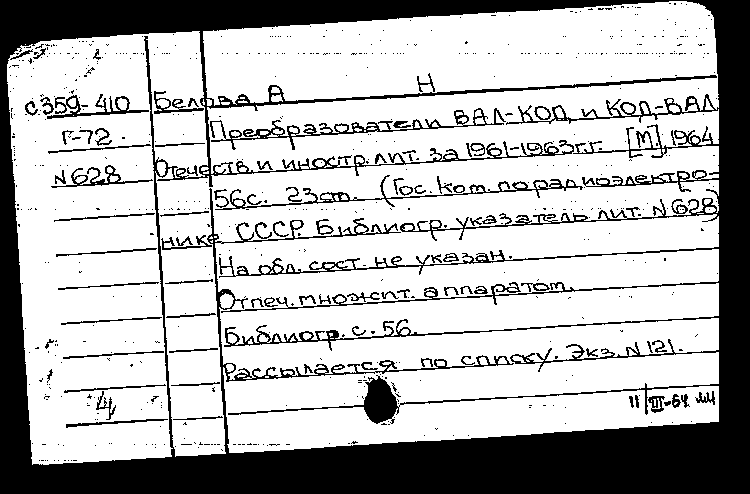 с359-410 Белова, А Н
Г-72. Преобразователи ВАЛ-КОД и КОД-ВАЛ
N628 Отечеств. и иностр. лит. за 1961-1963гг. [М], 1964
56с. 23см. (Гос. Ком. по радиоэлектро-
нике СССР. Библиогр. указатель лит. N628)
На обл. сост. не указан.
Отпеч. множит. аппаратом.
Библиогр. с. 56.
Рассылается по списку. Экз. N 121.
4 11/III-64